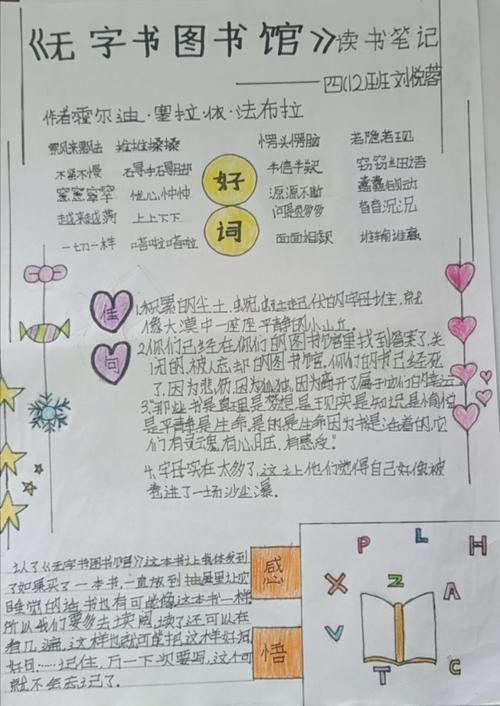 《无字书图书馆》读书笔记
——四(12)班刘悦蓉
作者霍尔迪·塞拉·依·法布拉
飘来飘去 推推搡搡 愣头愣脑 若隐若现
不紧不慢 半信半疑 窃窃细语
忧心忡忡 源源不断
越来越满 上上下下 问题多多
一切一样 嗒啦嗒啦 面面相觑
好词
佳句
1.积累的尘土,蜿蜒起伏的字母堆,就
像大漠中一座座平静的小山丘。
2.你们已经在你们的图书馆里找到答案了,关
闭的,被人忘却的图书馆,你们的书已经死
了,因为悲伤,因为孤独,因为离开了属于他们的
3."那些书是真理是梦想是现实是知识是
是平静是生命,是的是生命因为书是活着的,它
们有灵魂,有心脏,有感受。"
4.字母实在太多了,这让他们觉得自己好像被
卷进了一场沙尘瀑。
感悟
认了《无字书图书馆》这本书让我体会到
了如果买了一本书,一直放到抽屉里让它
睡觉的话书也有可能像这本书一样
所以我们要多去读阅,读了还可以在
看几遍,这样也就可能把这样好词
好句……记住,万一下次要写,这个可
就不会忘记了。
P L H
X Z A
V T C